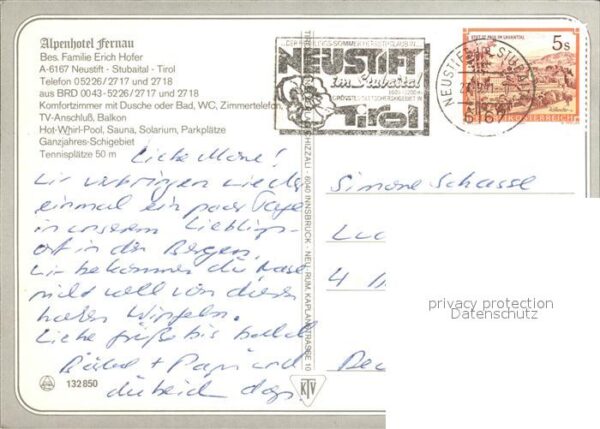 Alpenhotel Fernau
Bes. Familie Erich Hofer
A-6167 Neustift - Stubaital - Tirol
Telefon 05226/2717 und 2718
aus BRD 0043-5226/2717 und 2718
Komfortzimmer mit Dusche oder Bad, WC, Zimmertelefon,
TV-Anschluß, Balkon
Hot-Whirl-Pool, Sauna, Solarium, Parkplätze
Ganzjahres-Schigebiet
Tennisplätze 50 m
Liebe Mone!
Wir verbringen wieder
einmal ein paar Tage
in unserem Lieblings-
ort in den Bergen.
Wir bekommen die Nase
nicht voll von diesen
hohen Wipfeln.
Liebe Grüße bis bald
Bärbel + Papi und
132850
NEUSTIFT
im Stubaital
Tirol
NEUSTIFT STUBAITAL
6167
5s
STIFT ST. PAUL IM LAVANTTAL
REPUBLIK ÖSTERREICH
6040 INNSBRUCK - NEU-RUM, KAPLANSTRASSE 10
KTV
Simone
4
privacy protection
Datenschutz